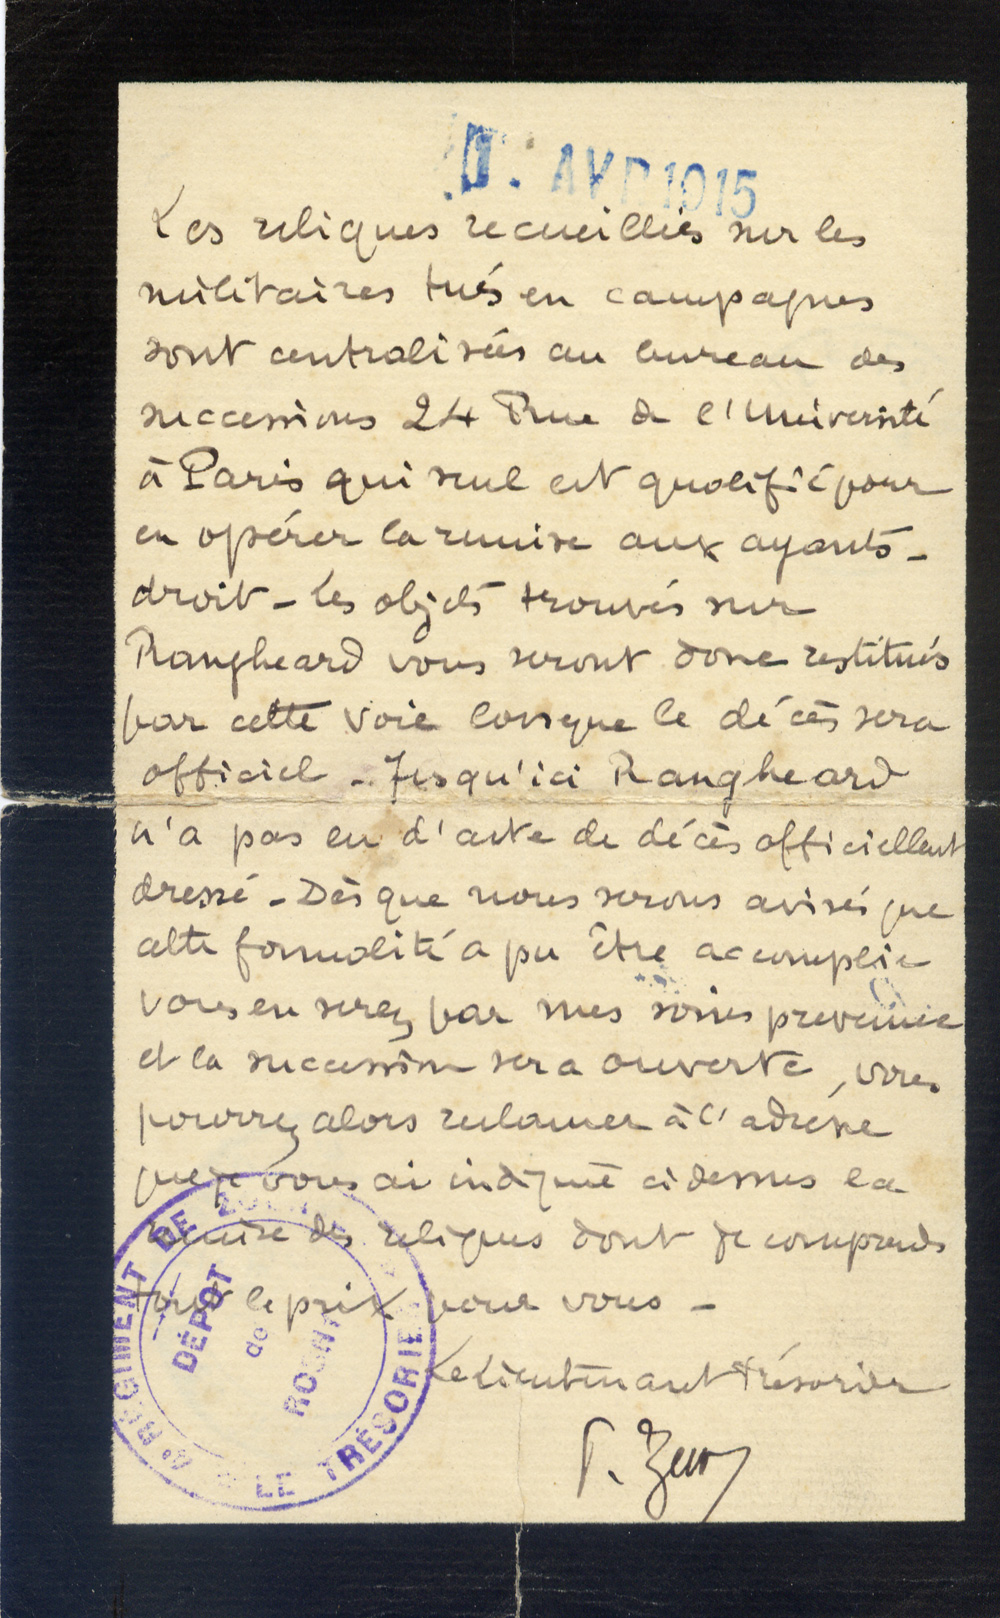 AVR 1915
Les reliques recueillies sur les
militaires tués en campagnes
sont centralisées au bureau des
successions 24 Rue de l'Université
à Paris qui seul est qualifié pour
en opérer la remise aux ayants-
droit - Les objets trouvés sur
Rangheard vous seront donc restitués
par cette voie lorsque le décès sera
officiel - Jusqu'ici Rangheard
n'a pas eu d'acte de décès officiellent
dressé - Dès que nous serons avisés que
cette formalité a pu être accomplie
vous en serez par mes soins prevenue
et la succession sera ouverte, vous
pourrez alors reclamer à l'adresse
que je vous ai indiqué ci dessus la
remise des reliques dont je comprends
tout le prix pour vous -
Le Lieutenant Trésorier
4e RÉGIMENT DE
DÉPÔT
de
ROSNY
LE TRÉSORIER